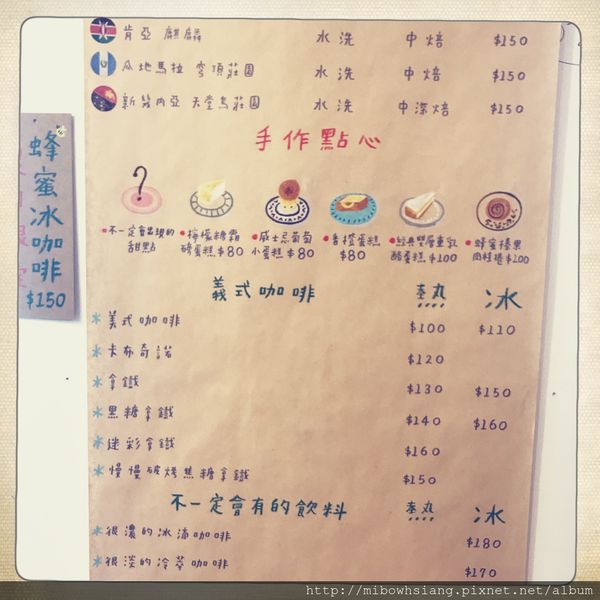 肯亞 麒麟 水洗 中焙 $150
瓜地馬拉 穹頂莊園 水洗 中焙 $150
新幾內亞 天堂鳥莊園 水洗 中深焙 $150
手作點心
?
不一定會出現的
甜點
檸檬糖霜
磅蛋糕 $80
威士忌葡萄
小蛋糕 $80
香橙蛋糕
$80
經典雙層重乳
酪蛋糕 $100
蜂蜜榛果
肉桂捲 $100
蜂蜜冰咖啡
$150
義式咖啡 熱 冰
美式咖啡 $100 $110
卡布奇諾 $120
拿鐵 $130 $150
黑糖拿鐵 $140 $160
迷彩拿鐵 $160
慢慢碳烤焦糖拿鐵 $150
不一定會有的飲料 熱 冰
很濃的冰滴咖啡 $180
很淡的冷萃咖啡 $170
http://mibowhsiang.pixnet.net/album